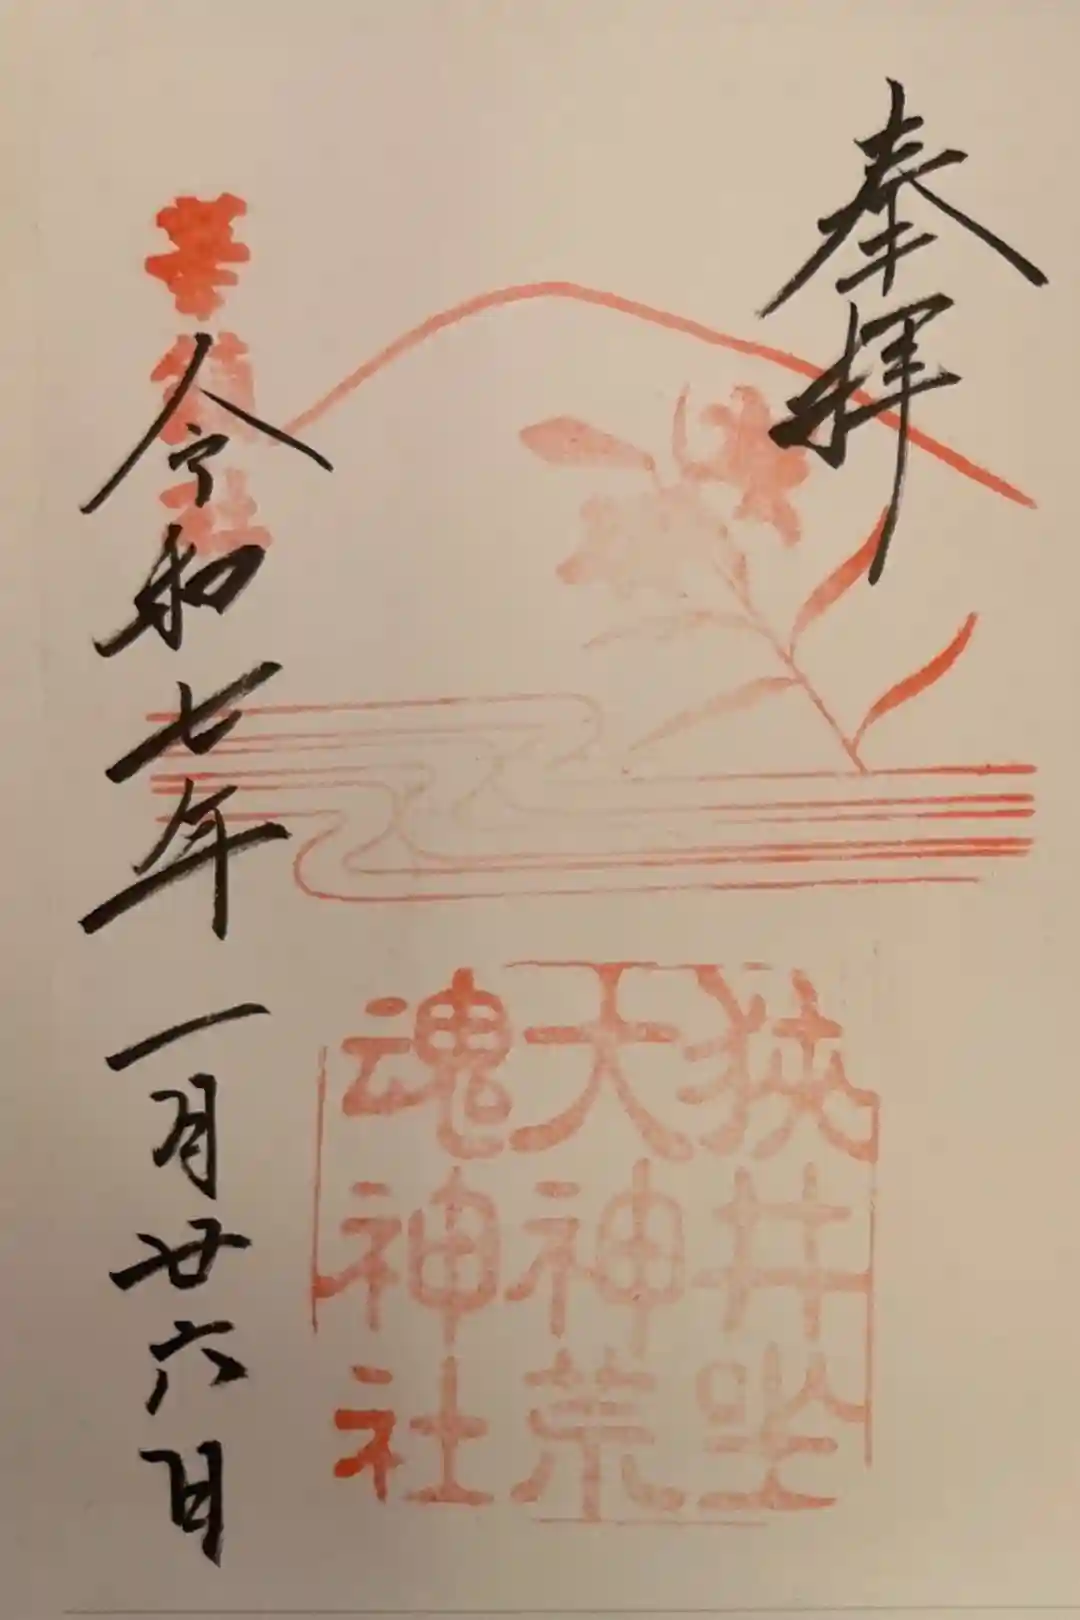 奉拝
狭井坐
大神荒
魂神社
華鎮社
令和七年一月廿六日